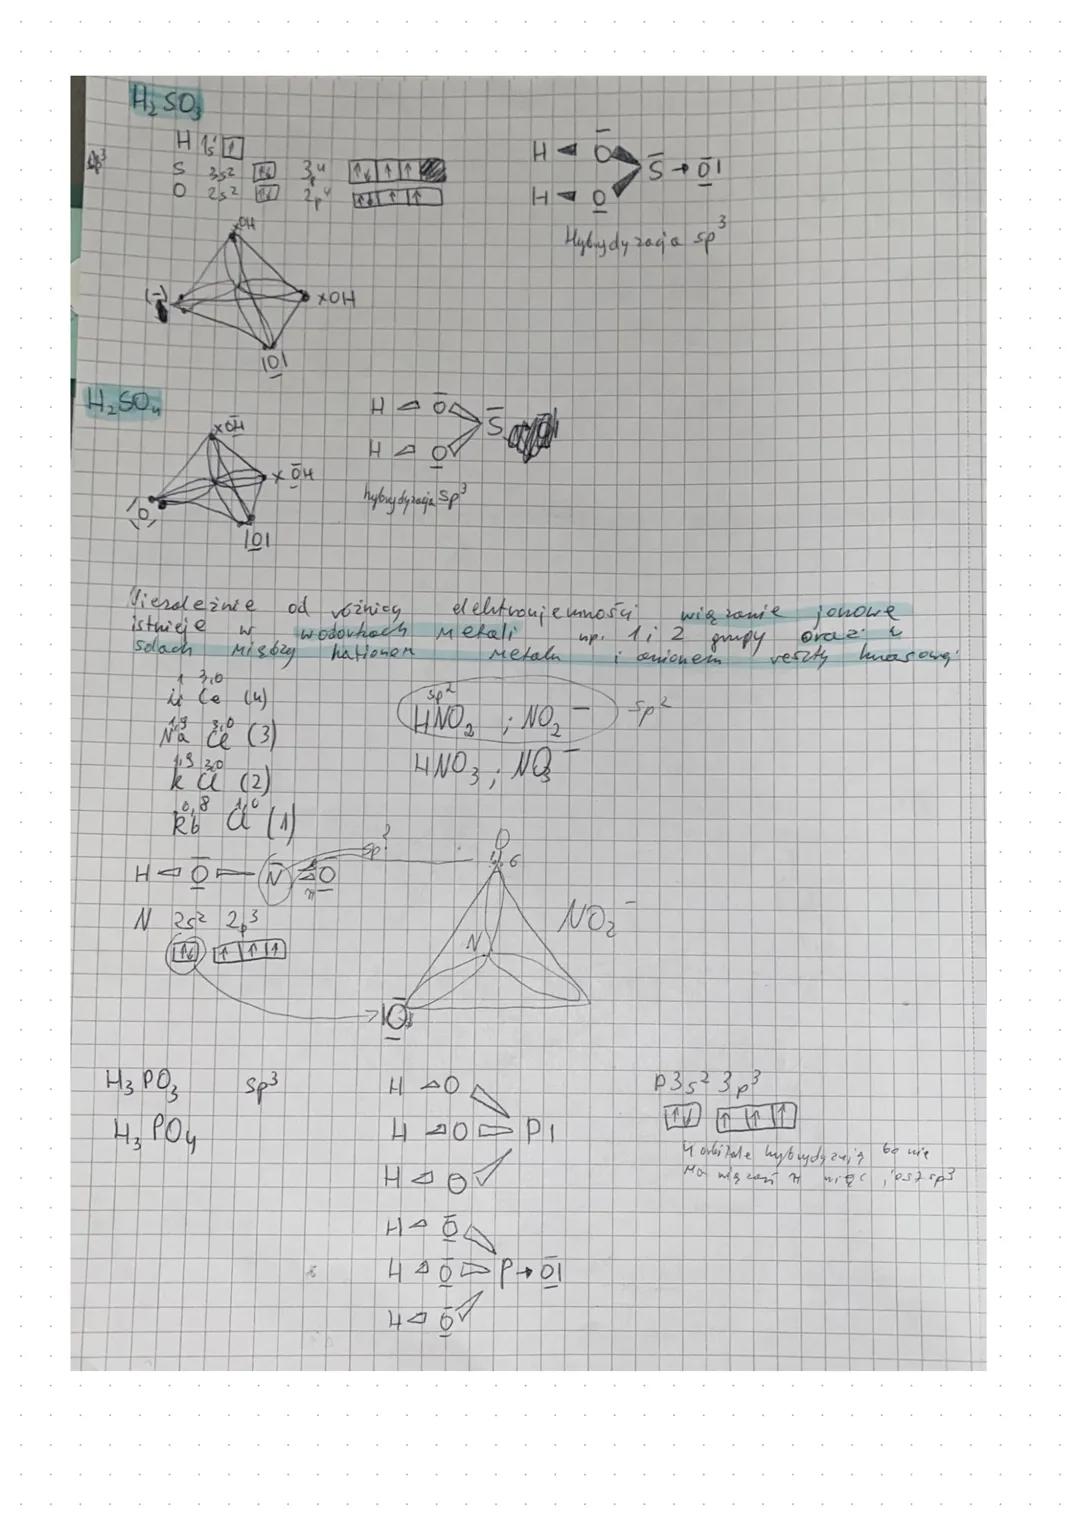 H₂SO₃
H 1s¹ ↑
sp³
S 3s² ↑↓ 3p⁴ ↑↓ ↑ ↑
O 2s² ↑↓ 2p⁴ ↑↓ ↑ ↑
H O
S → O|
H O
Hybrydyzacja sp³
xOH
(-)
xOH
|O|
H₂SO₄
H O
S
H O
hybrydyzacja sp³
xOH
x OH
O
|O|
Niezależnie od różnicy elektroujemności wiązanie jonowe
istnieje w wodorkach metali np. 1 i 2 grupy oraz w
solach między kationem metalu i anionem reszty kwasowej
1 3,0
Li Cl (4)
3,0
Na Cl (3)
3,0
K Cl (2)
0,8
Rb Cl (1)
sp²
HNO₂ ; NO₂⁻ sp²
HNO₃ ; NO₃⁻
H O N O
sp²
π
N 2s² 2p³
↑↓ ↑ ↑ ↑
O
σ
N
NO₂⁻
|O
H₃PO₃ sp³
H₃PO₄
H O
H O P|
H O
P 3s² 3p³
↑↓ ↑ ↑ ↑
4 orbitale hybrydyzują bo nie
ma wiązań π więc jest sp³
H O
H O P → O|
H O